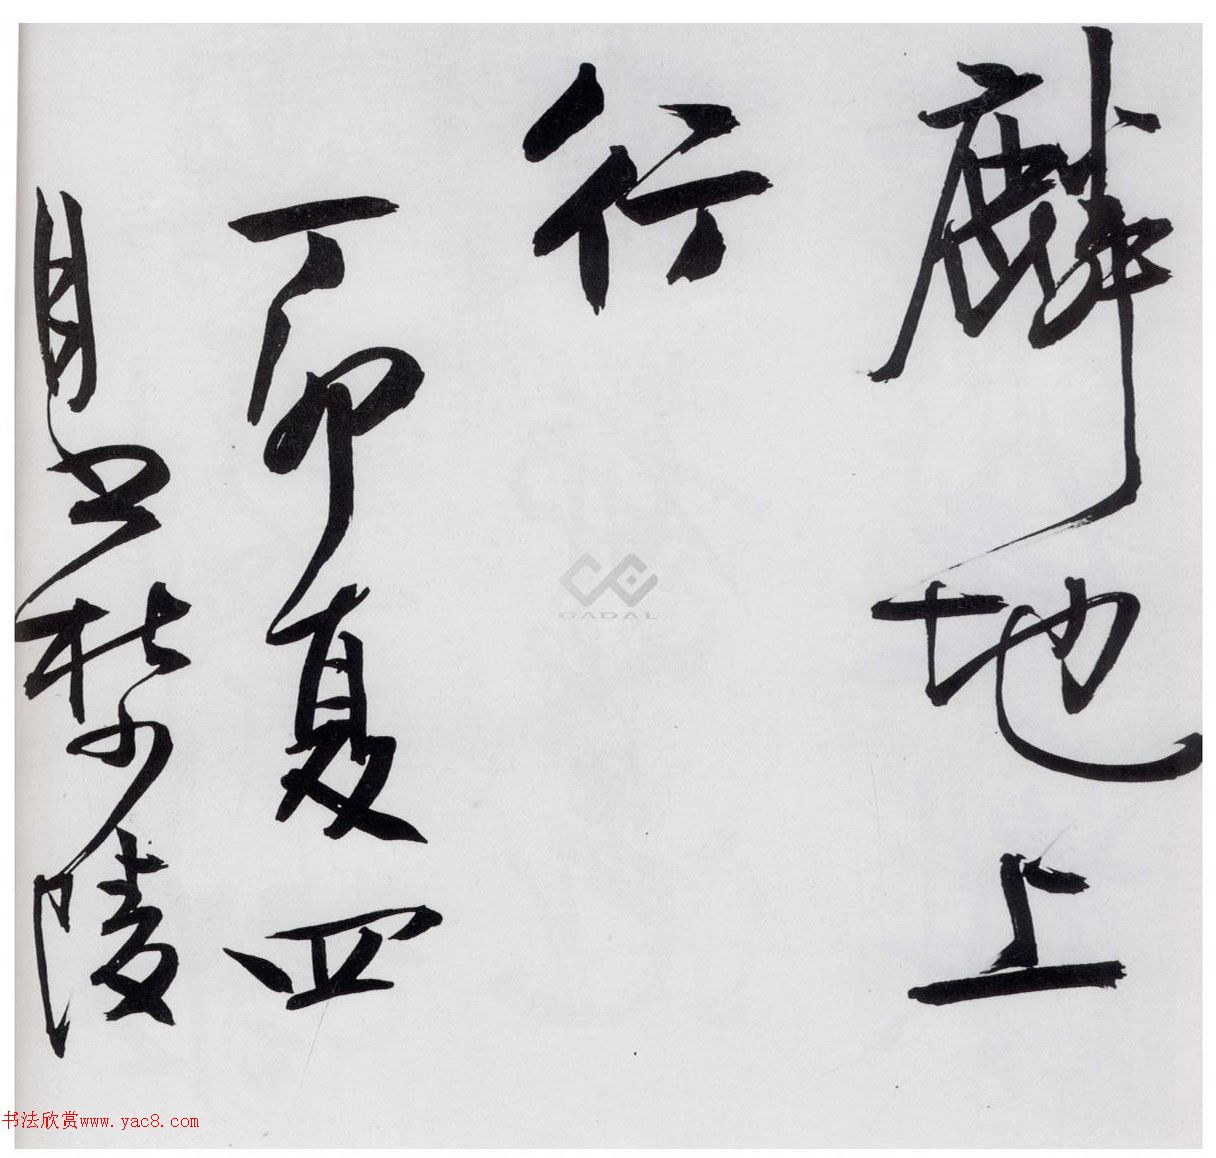 麟地上
行
丁卯夏四
月书杜少陵
CADAL
书法欣赏www.yac8.com